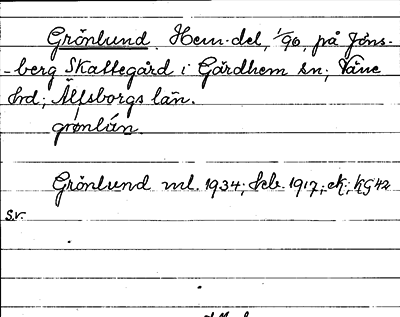 Grönlund. Hem.del, 1/90, på Jöns-
-berg Skattegård i Gärdhem sn; Väne
hrd; Älfsborgs län.
grønlún.
Grönlund ml. 1934; hcb. 1917; ek; KG42
s.v.